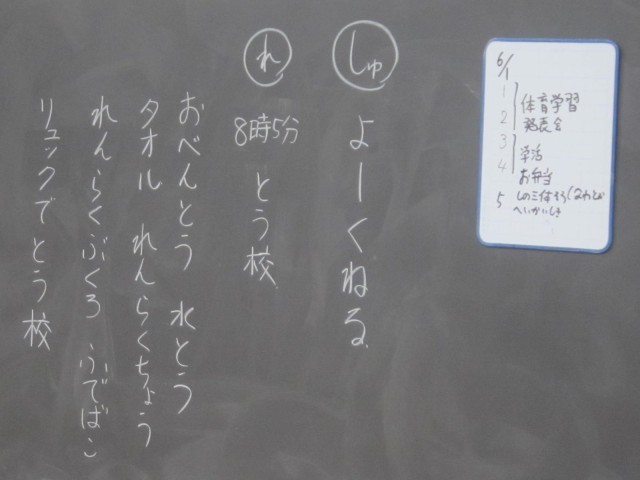 しゅ よーくねる
れ 8時5分 とう校
おべんとう 水とう
タオル れんらくちょう
れんらくぶくろ ふでばこ
リュックでとう校
6/1
1
2
体育学習
発表会
3
4
学活
お弁当
5
へいかいしき